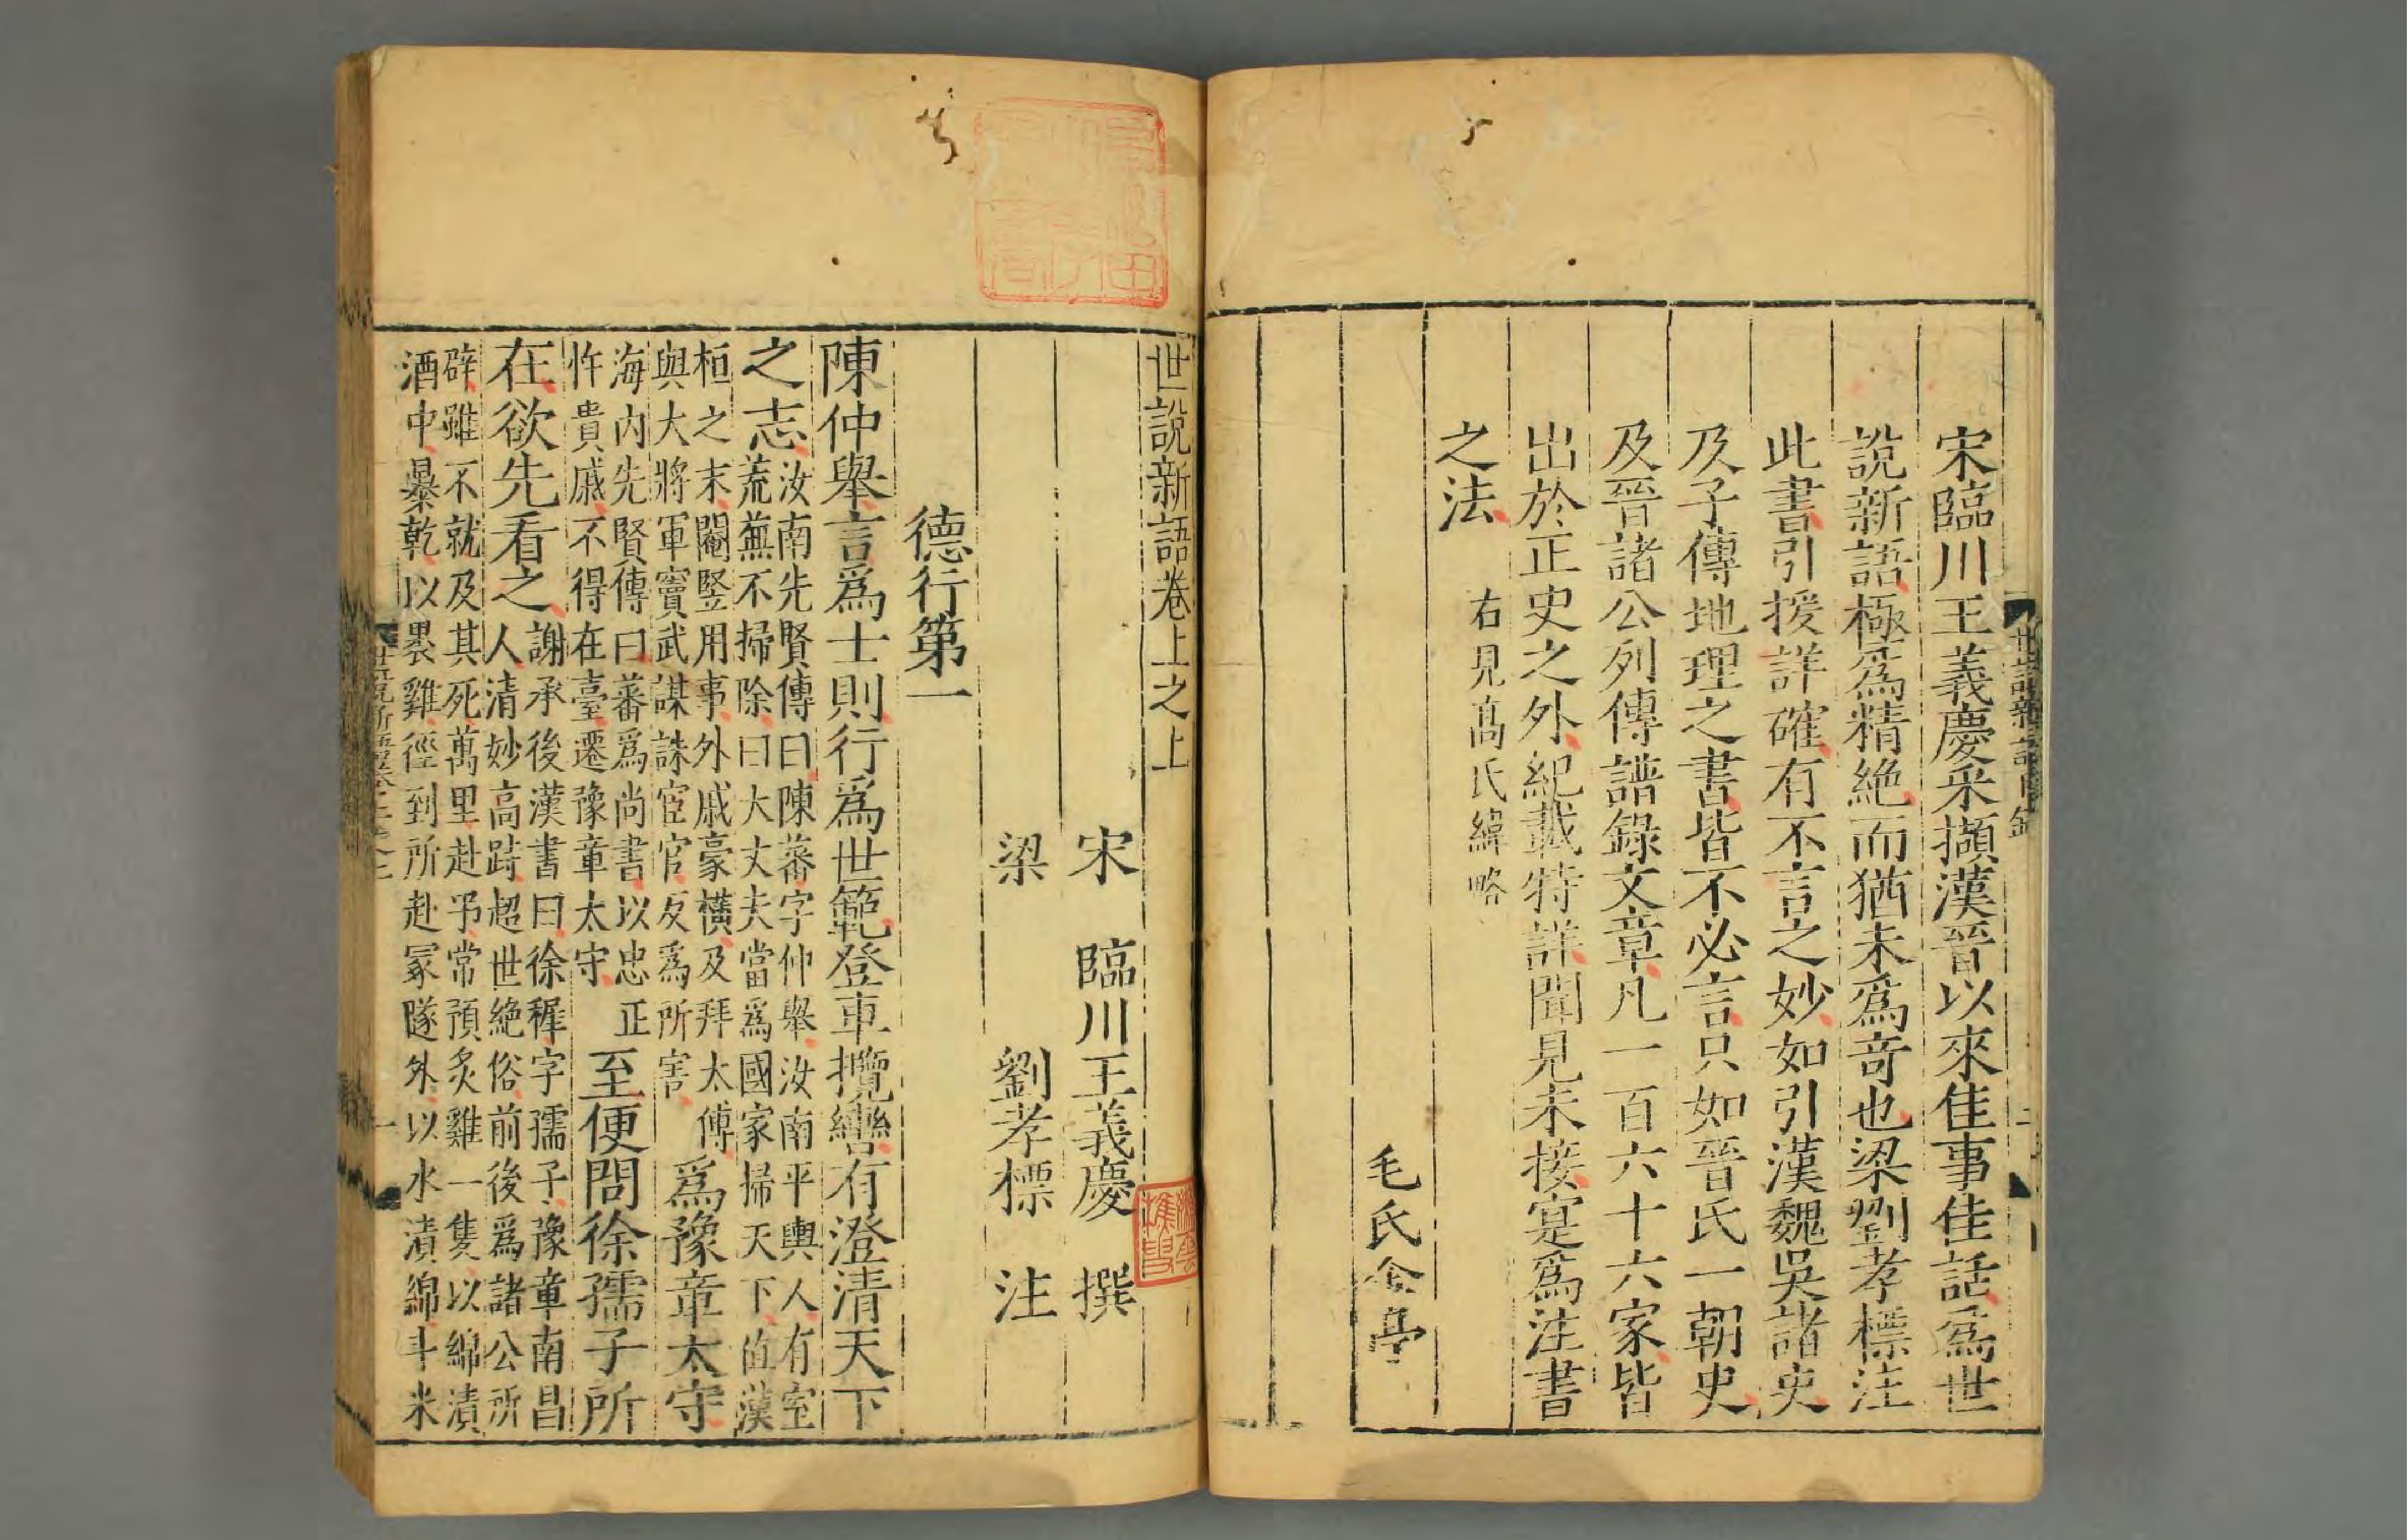 宋臨川王義慶采擷漢晉以來佳事佳話爲世
說新語極爲精絕而猶未爲奇也梁劉孝標注
此書引援詳確有不言之妙如引漢魏吳諸史
及子傳地理之書皆不必言只如晉氏一朝史
及晉諸公列傳譜錄文章凡一百六十六家皆
出於正史之外紀載特詳聞見未接寔爲注書
之法
右見髙氏緯略
毛氏金亭
世說新語卷上之上
宋 臨川王義慶 撰
梁 劉孝標 注
德行第一
陳仲舉言爲士則行爲世範登車攬轡有澄清天下
之志
汝南先賢傳曰陳蕃字仲舉汝南平輿人有室
荒蕪不掃除曰大丈夫當爲國家掃天下值漢
桓之末閹豎用事外戚豪橫及拜太傅
與大將軍竇武謀誅宦官反爲所害
爲豫章太守
海內先賢傳曰蕃爲尚書以忠正
忤貴戚不得在臺遷豫章太守
至便問徐孺子所
在欲先看之
謝承後漢書曰徐穉字孺子豫章南昌
人清妙高跱超世絕俗前後爲諸公所
辟雖不就及其死萬里赴弔常預炙雞一隻以綿漬
酒中暴乾以裹雞徑到所赴冢隧外以水漬綿斗米